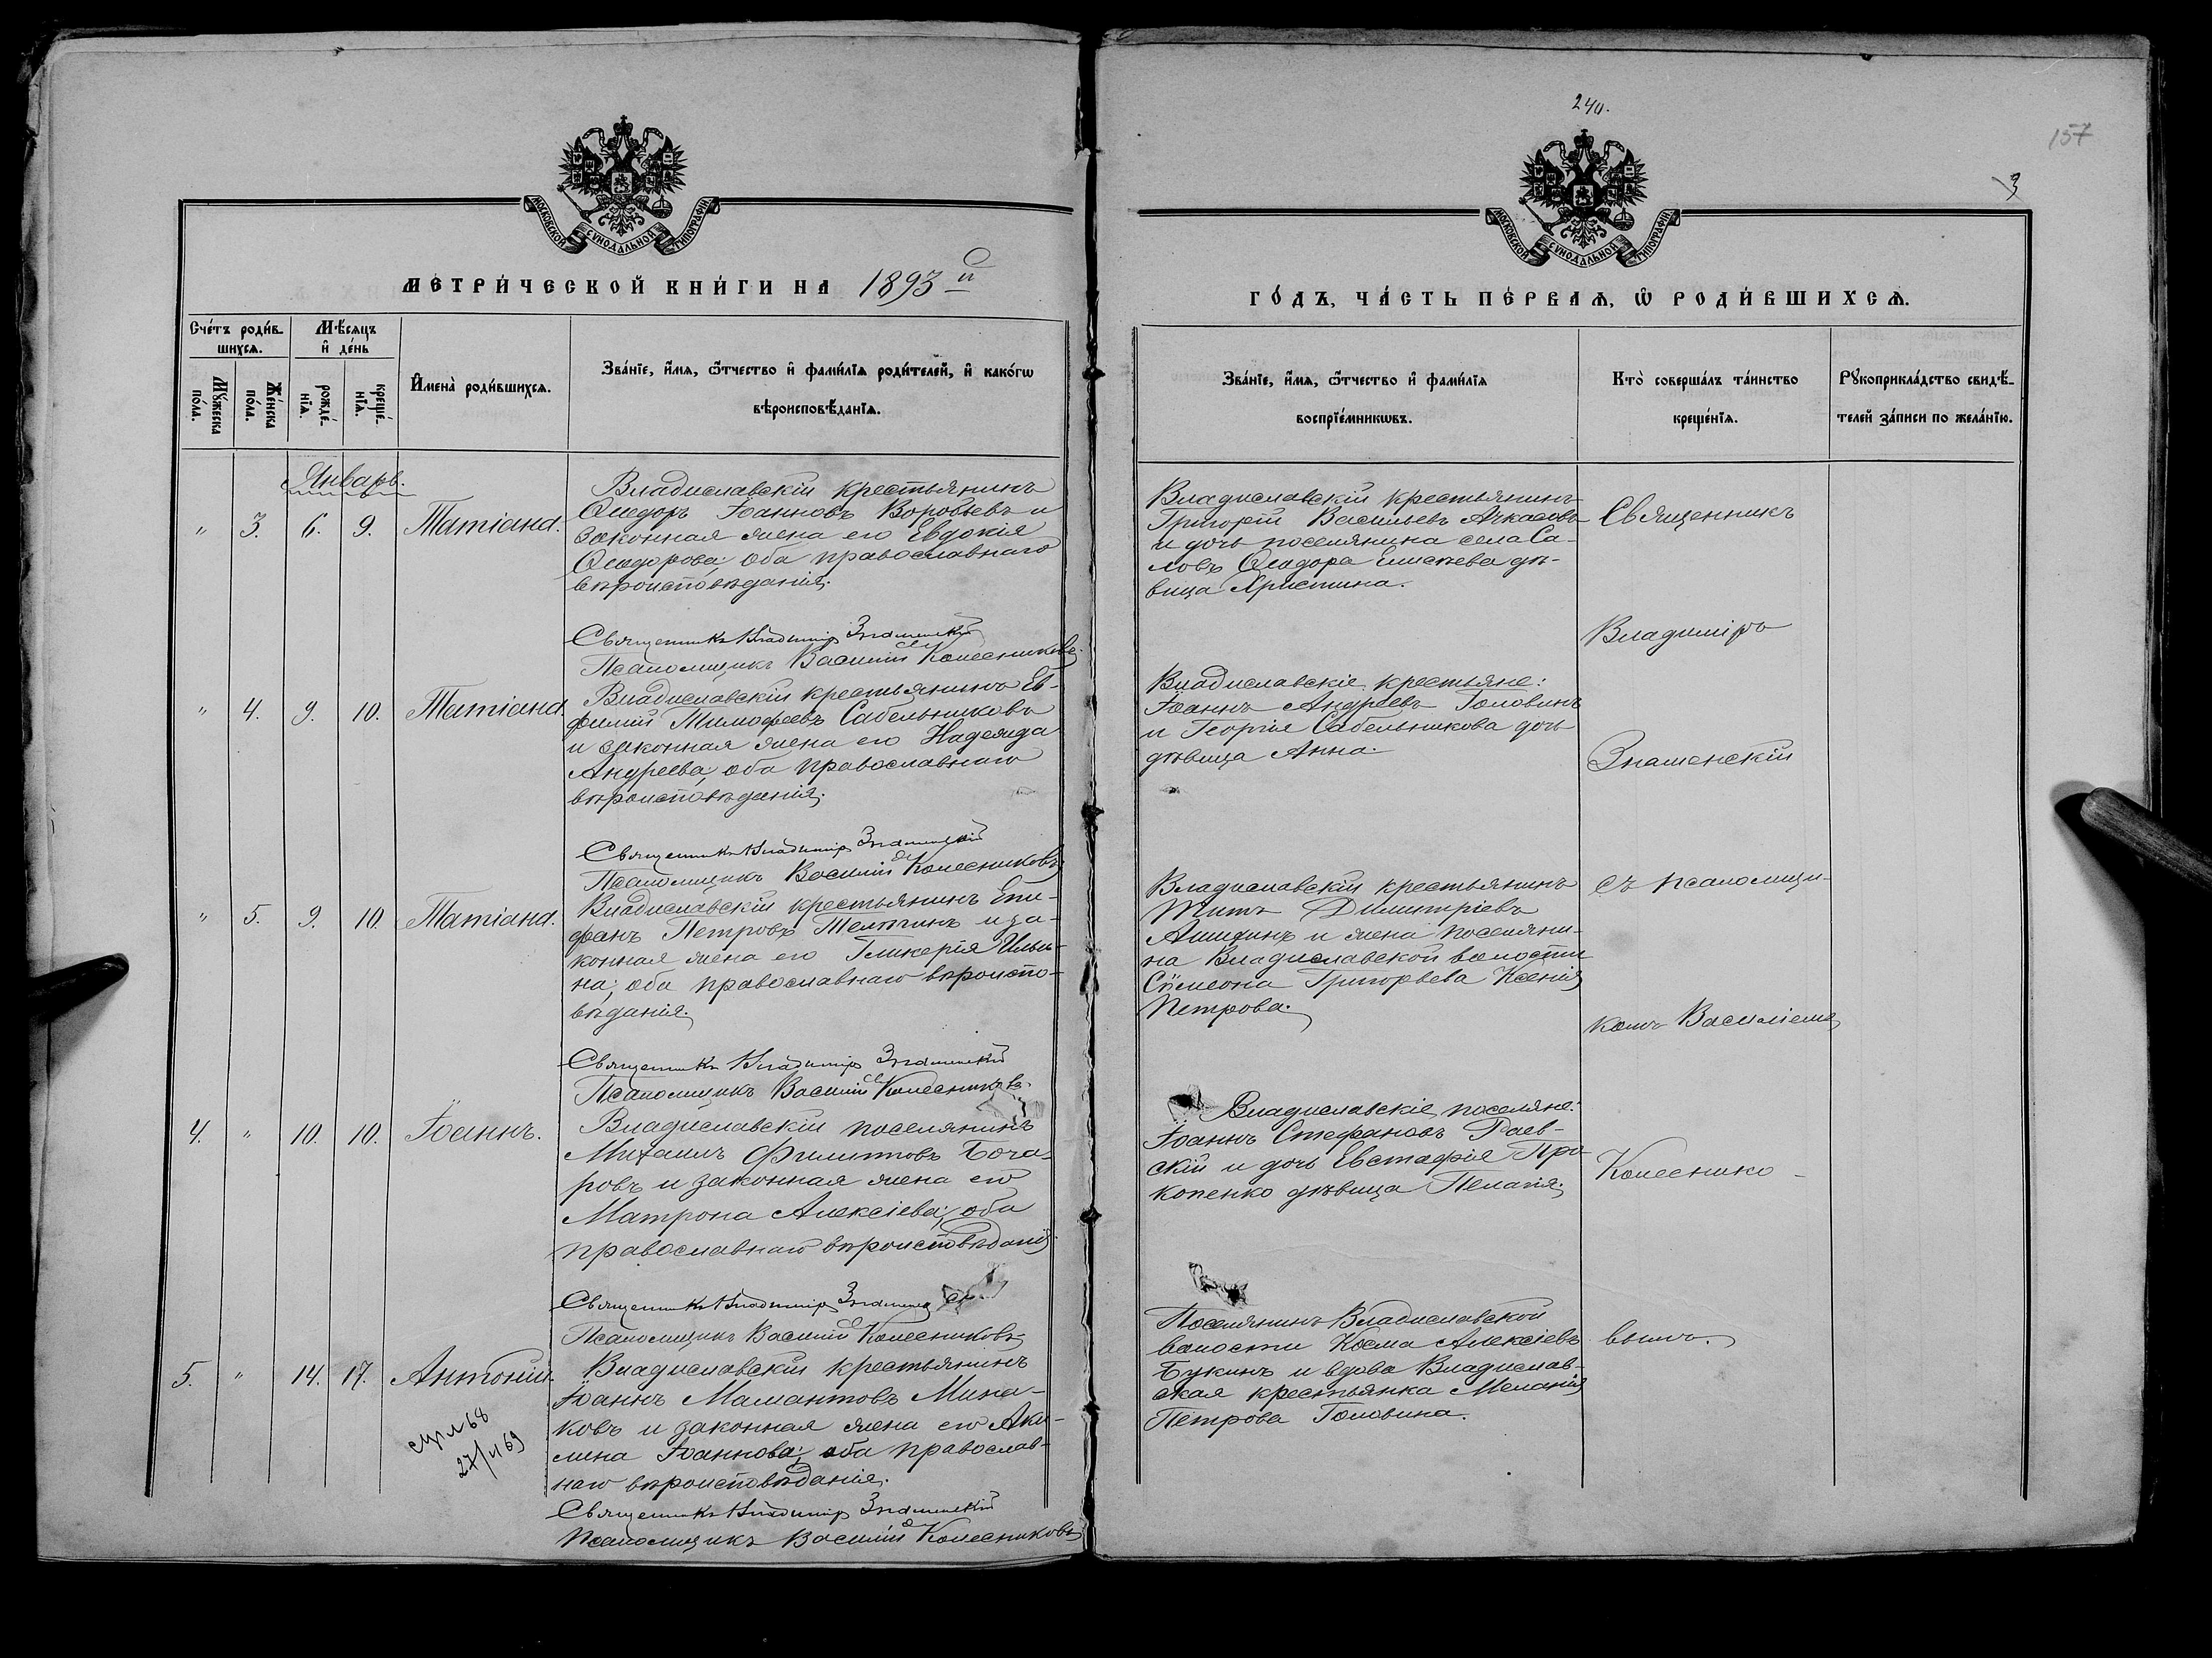 240.
157
3
МОСКОВСКОЙ СѴНОДАЛЬНОЙ ТИПОГРАФІИ
МОСКОВСКОЙ СѴНОДАЛЬНОЙ ТИПОГРАФІИ
МЕТРИ́ЧЕСКОЙ КНИ́ГИ НА 1893й
ГО́ДЪ, ЧА́СТЬ ПЕ́РВАѦ, Ѡ҆ РОДИ́ВШИХСѦ.
Сче́тъ роди́в-
шихсѧ.
Мѣ́сѧцъ
и҆ де́нь
Мꙋ́жеска
по́ла.
Же́нска
по́ла.
рожде́-
нїѧ.
креще́-
нїѧ.
И҆мена̀ роди́вшихсѧ.
Зва́нїе, и҆́мѧ, ѻ҆́тчество и҆ фами́лїѧ роди́телей, и҆ како́гѡ
вѣроисповѣ́данїѧ.
Зва́нїе, и҆́мѧ, ѻ҆́тчество и҆ фами́лїѧ
воспрїе́мникѡвъ.
Кто̀ соверша́лъ та́инство
креще́нїѧ.
Рꙋкоприкла́дство свидѣ́-
телей за́писи по жела́нїю.
Январь.
" 3. 6. 9. Татіана.
Владиславскій крестьянинъ
Ѳеодоръ Іоанновъ Воробьевъ и
законная жена его Евдокія
Ѳеодорова; оба православнаго
вѣроисповѣданія.
Священникъ Владиміръ Знаменскій
Псаломщикъ Василій Колесниковъ.
Владиславскій крестьянинъ
Григорій Васильевъ Ачкасовъ
и дочь поселянина села Са-
ловъ Ѳеодора Елисеева дѣ-
вица Христина.
Священникъ
Владиміръ
Знаменскій
съ псаломщи-
комъ Василіемъ
Колеснико-
вымъ.
" 4. 9. 10. Татіана.
Владиславскій крестьянинъ Ев-
фимій Тимофеевъ Сабельниковъ
и законная жена его Надежда
Андреева; оба православнаго
вѣроисповѣданія.
Священникъ Владиміръ Знаменскій
Псаломщикъ Василій Колесниковъ
Владиславскіе крестьяне:
Іоаннъ Андреевъ Головинъ
и Георгія Сабельникова дочь
дѣвица Анна.
" 5. 9. 10. Татіана.
Владиславскій крестьянинъ Епи-
фанъ Петровъ Телятинъ и за-
конная жена его Гликерія Ильи-
на; оба православнаго вѣроиспо-
вѣданія.
Священникъ Владиміръ Знаменскій
Псаломщикъ Василій Колесниковъ.
Владиславскій крестьянинъ
Титъ Димитріевъ
и жена поселяни-
на Владиславской волости
Сѵмеона Григорьева Ксенія
Петрова.
4. " 10. 10. Іоаннъ.
Владиславскій поселянинъ
Михаилъ Филипповъ Боча-
ровъ и законная жена его
Матрона Алексіева; оба
православнаго вѣроисповѣданія.
Священникъ Владиміръ
Псаломщикъ Василій Колесниковъ
Владиславскіе поселяне:
Іоаннъ Стефановъ Раев-
скій и дочь Евстафія Про-
копенко дѣвица Пелагія.
5. " 14. 17. Антоній.
27/VI 69
Владиславскій крестьянинъ
Іоаннъ Мамантовъ Мина-
ковъ и законная жена его Аки-
лина Іоаннова; оба православ-
наго вѣроисповѣданія.
Священникъ Владиміръ Знаменскій
Псаломщикъ Василій Колесниковъ
Поселянинъ Владиславской
волости Косма Алексіевъ
Букинъ и вдова Владислав-
ская крестьянка Меланія
Петрова Головина.